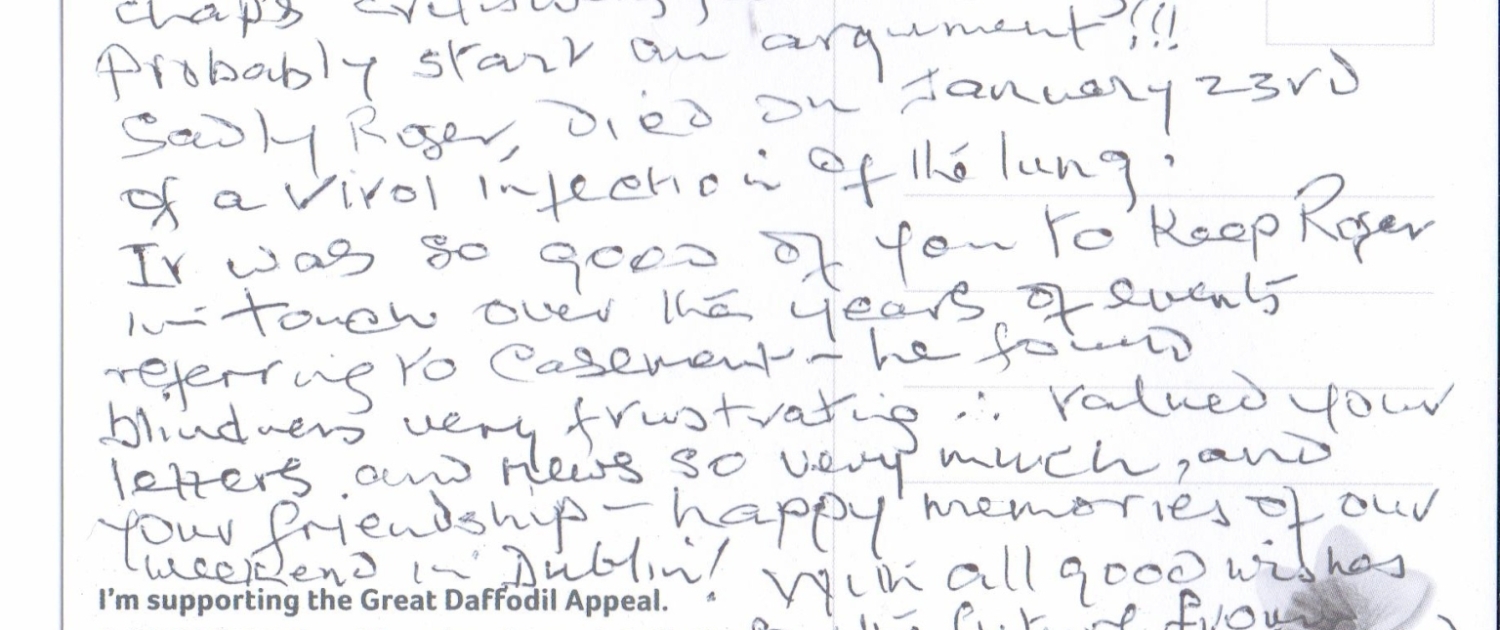 chaps
Probably start an argument!!!
Sadly Roger, died on January 23rd
of a viral infection of the lung.
It was so good of you to keep Roger
in-touch over the years of events
referring to Casement - he found
blindness very frustrating ∴ valued your
letters and news so very much, and
your friendship - happy memories of our
weekend in Dublin! With all good wishes
I'm supporting the Great Daffodil Appeal.
the future from